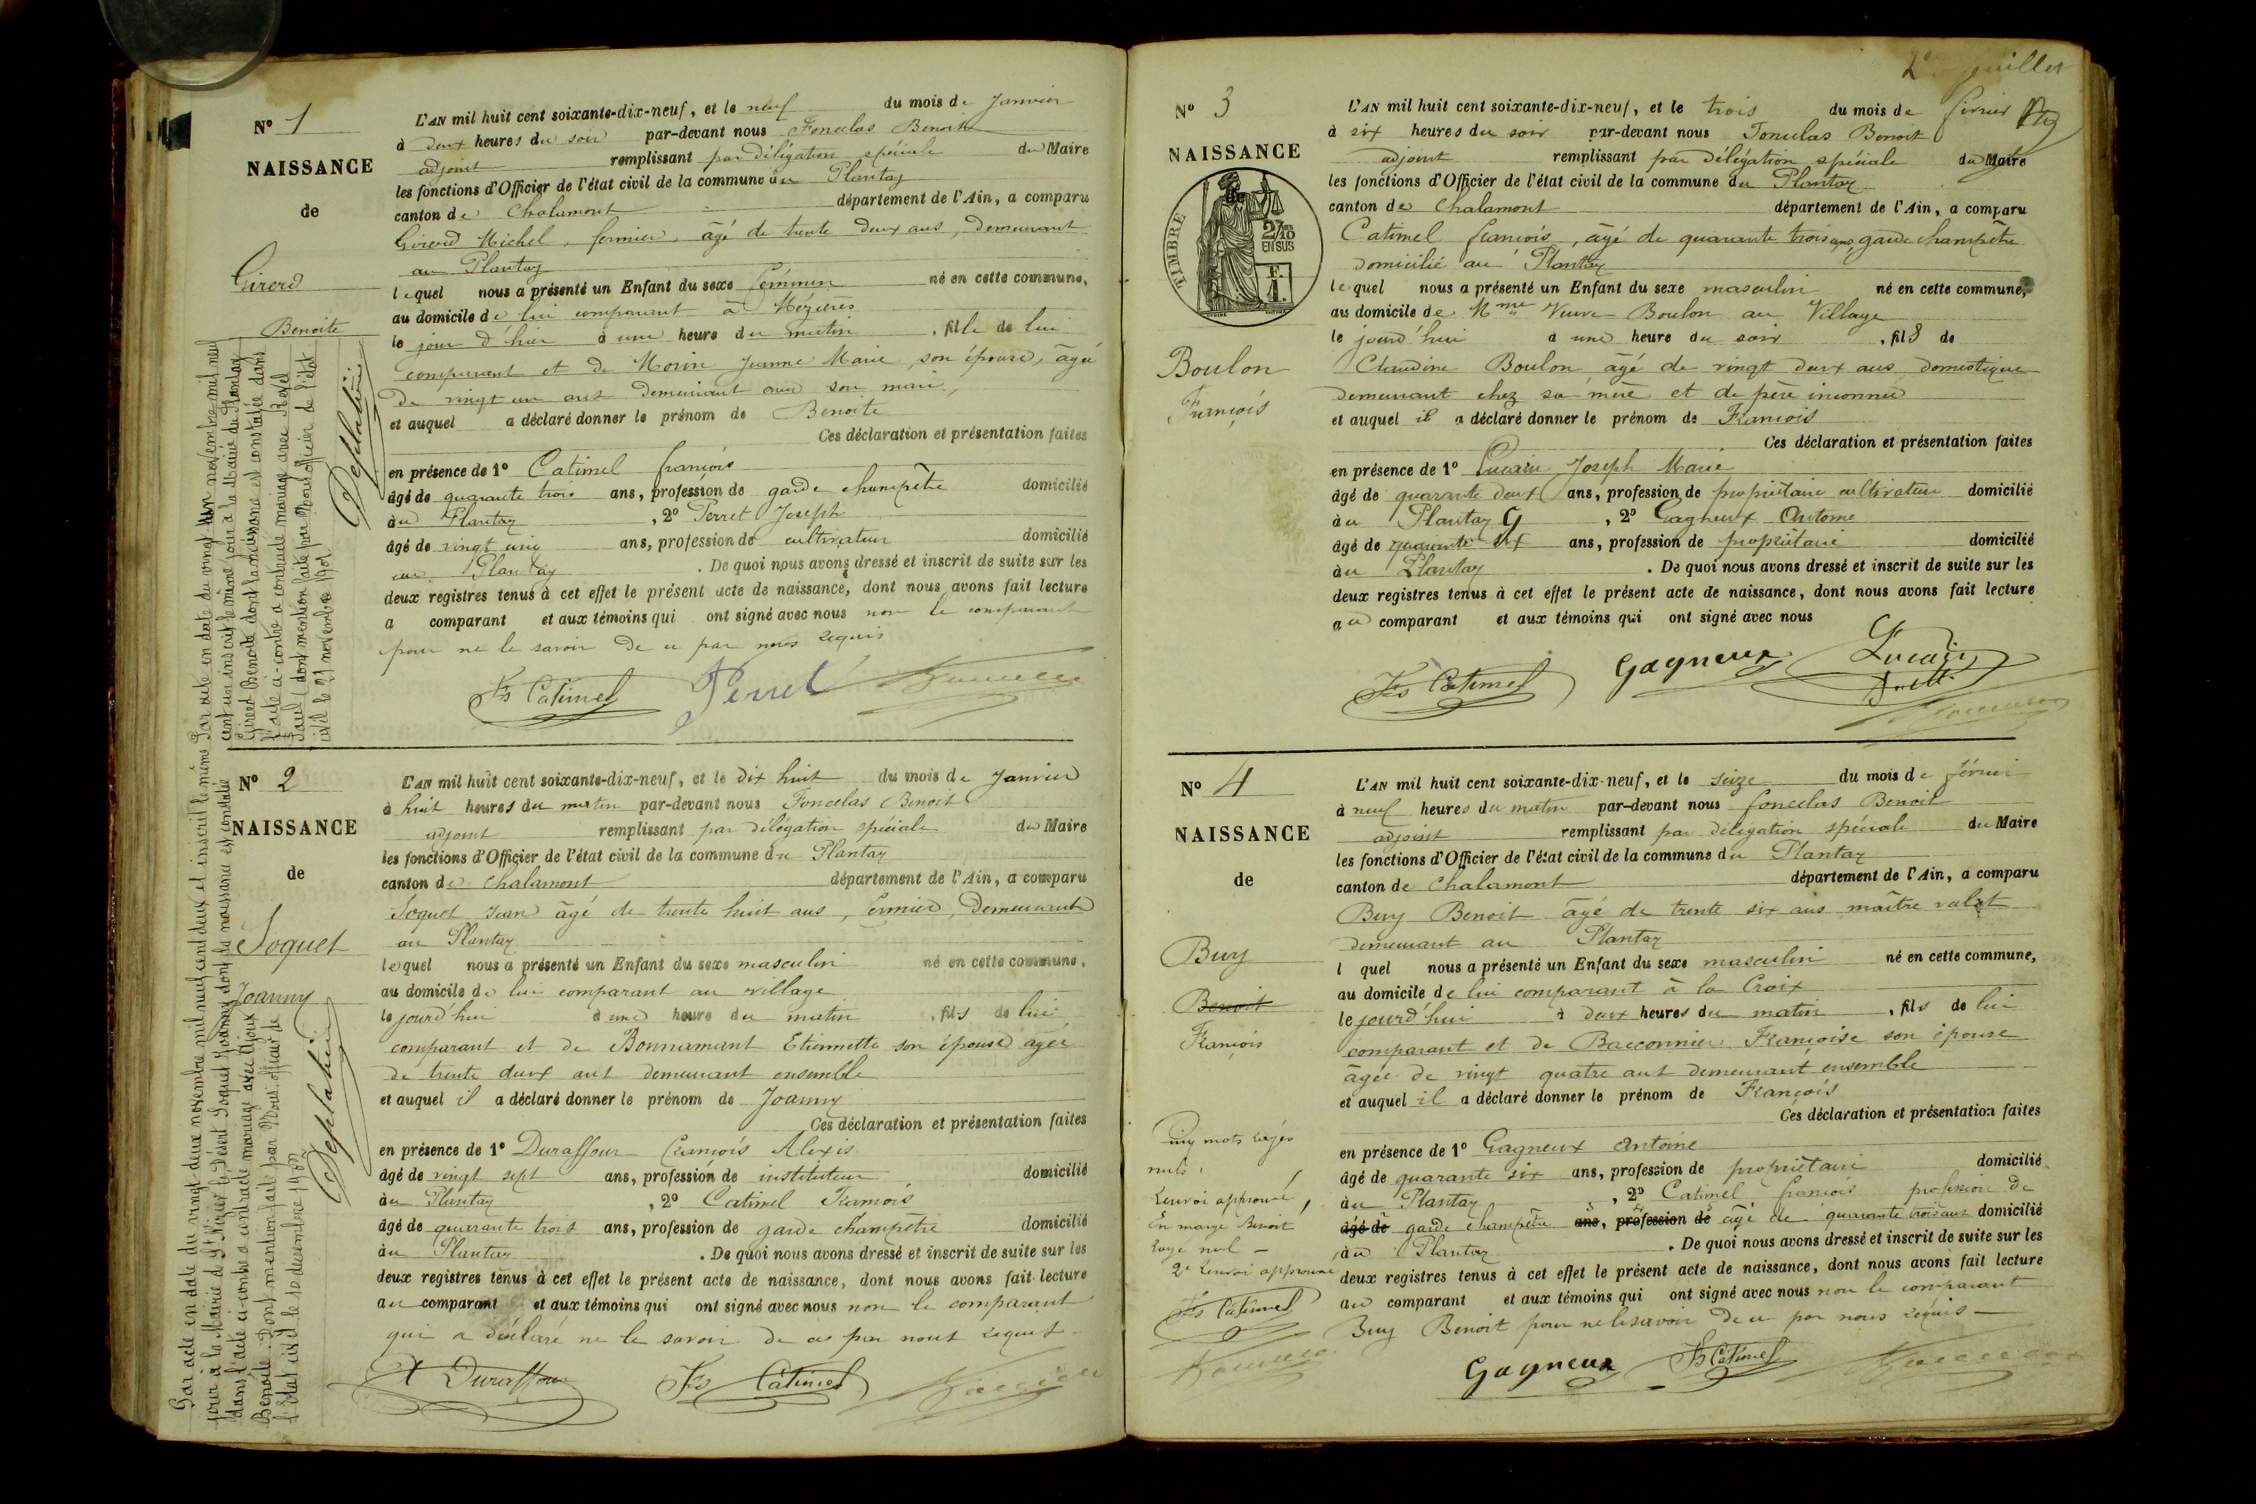 N° 1
NAISSANCE
de
Girerd
Benoite
L'AN mil huit cent soixante-dix-neuf, et le neuf du mois de Janvier
à deux heures du soir par-devant nous Foncelas Benoit
adjoint remplissant par délégation spéciale du Maire
les fonctions d'Officier de l'état civil de la commune du Plantay
canton de Chalamont département de l'Ain, a comparu
Girerd Michel, fermier, âgé de trente deux ans, demeurant
au Plantay
lequel nous a présenté un Enfant du sexe féminin né en cette commune,
au domicile de lui comparant à Mézières
le jour d'hier à une heure du matin , fille de lui
comparant et de Morin Jeanne Marie, son épouse, âgée
de vingt un ans demeurant avec son mari,
et auquel a déclaré donner le prénom de Benoite
Ces déclaration et présentation faites
en présence de 1° Catimel françois
âgé de quarante trois ans, profession de garde champêtre domicilié
au Plantay , 2° Perret Joseph
âgé de vingt cinq ans, profession de cultivateur domicilié
au Plantay . De quoi nous avons dressé et inscrit de suite sur les
deux registres tenus à cet effet le présent acte de naissance, dont nous avons fait lecture
a comparant et aux témoins qui ont signé avec nous non le comparant
pour ne le savoir de ce par nous requis
Fs Catimel Perret
Par acte en date du vingt un novembre mil neuf
cent un inscrit le même jour à la Mairie du Plantay
Girerd Benoite dont la naissance est constatée dans
l'acte ci-contre a contracté mariage avec Revel
Paul (dont mention faite par Nous officier de l'état
civil le 21 novembre 1901)
N° 2
NAISSANCE
de
Soquet
Joanny
L'AN mil huit cent soixante-dix-neuf, et le dix huit du mois de Janvier
à huit heures du matin par-devant nous Foncelas Benoit
adjoint remplissant par délégation spéciale du Maire
les fonctions d'Officier de l'état civil de la commune du Plantay
canton de Chalamont département de l'Ain, a comparu
Soquet Jean âgé de trente huit ans, fermier, demeurant
au Plantay
lequel nous a présenté un Enfant du sexe masculin né en cette commune,
au domicile de lui comparant au village
le jourd'hui à une heure du matin , fils de lui
comparant et de Bonnamant Etiennette son épouse agée
de trente deux ans demeurant ensemble
et auquel il a déclaré donner le prénom de Joanny
Ces déclaration et présentation faites
en présence de 1° Duraffour françois Alexis
âgé de vingt sept ans, profession de instituteur domicilié
au Plantay , 2° Catimel François
âgé de quarante trois ans, profession de garde champêtre domicilié
au Plantay . De quoi nous avons dressé et inscrit de suite sur les
deux registres tenus à cet effet le présent acte de naissance, dont nous avons fait lecture
au comparant et aux témoins qui ont signé avec nous non le comparant
qui a déclaré ne le savoir de ce par nous requis
A Duraffour Fs Catimel
Par acte en date du vingt-deux novembre mil neuf cent deux et inscrit le même
jour à la Mairie de St Nizier le Désert Soquet Joanny dont la naissance est constatée
dans l'acte ci-contre a contracté mariage avec Ajoux
Benoite. Dont mention faite par Nous officier de
l'état civil le 10 décembre 1902
N° 3
NAISSANCE
de
TIMBRE
2/10 EN SUS
F. 1.
Boulon
François
2e feuillet
L'AN mil huit cent soixante-dix-neuf, et le trois du mois de février
à six heures du soir par-devant nous Foncelas Benoit
adjoint remplissant par délégation spéciale du Maire
les fonctions d'Officier de l'état civil de la commune du Plantay
canton de Chalamont département de l'Ain, a comparu
Catimel françois, âgé de quarante trois ans, garde champêtre
domicilié au Plantay
lequel nous a présenté un Enfant du sexe masculin né en cette commune,
au domicile de Mme Veuve Boulon au Village
le jourd'hui à une heure du soir , fils de
Claudine Boulon âgé de vingt deux ans domestique
demeurant chez sa mère et de père inconnu
et auquel il a déclaré donner le prénom de François
Ces déclaration et présentation faites
en présence de 1° Joseph Marie
âgé de quarante deux ans, profession de propriétaire cultivateur domicilié
au Plantay , 2° Gagneux Antoine
âgé de quarante six ans, profession de propriétaire domicilié
au Plantay . De quoi nous avons dressé et inscrit de suite sur les
deux registres tenus à cet effet le présent acte de naissance, dont nous avons fait lecture
au comparant et aux témoins qui ont signé avec nous
Fs Catimel Gagneux
N° 4
NAISSANCE
de
Buy
Benoit
François
L'AN mil huit cent soixante-dix-neuf, et le seize du mois de février
à neuf heures du matin par-devant nous foncelas Benoit
adjoint remplissant par délégation spéciale du Maire
les fonctions d'Officier de l'état civil de la commune du Plantay
canton de Chalamont département de l'Ain, a comparu
Buy Benoit âgé de trente six ans maître valet
demeurant au Plantay
l quel nous a présenté un Enfant du sexe masculin né en cette commune,
au domicile de lui comparant à la Croix
le jourd'hui à deux heures du matin , fils de lui
comparant et de Bacconnier Françoise son épouse
âgée de vingt quatre ans demeurant ensemble
et auquel il a déclaré donner le prénom de François
Ces déclaration et présentation faites
en présence de 1° Gagneux Antoine
âgé de quarante six ans, profession de propriétaire domicilié
au Plantay , 2° Catimel françois profession de
âgé de garde champêtre ans, profession de âgé de quarante trois ans domicilié
au Plantay . De quoi nous avons dressé et inscrit de suite sur les
deux registres tenus à cet effet le présent acte de naissance, dont nous avons fait lecture
au comparant et aux témoins qui ont signé avec nous non le comparant
Buy Benoit pour ne le savoir de ce par nous requis
Gagneux Fs Catimel
Cinq mots rayés
nuls.
Renvoi approuvé
En marge Benoit
rayé nul
2e renvoi approuvé
Fs Catimel